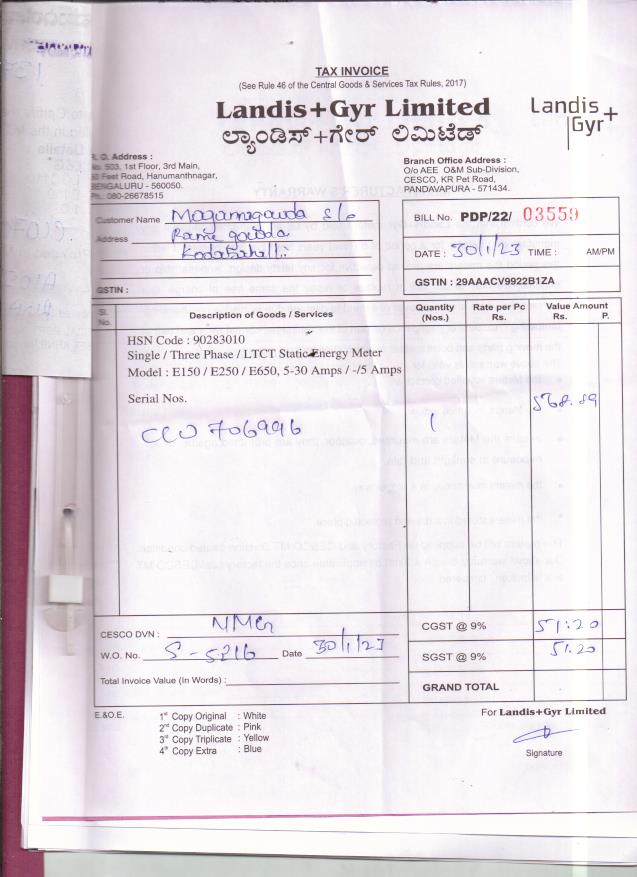 TAX INVOICE
(See Rule 46 of the Central Goods & Services Tax Rules, 2017)
Landis+Gyr Limited
ಲ್ಯಾಂಡಿಸ್+ಗೇರ್ ಲಿಮಿಟೆಡ್
Landis+
Gyr
R. O. Address :
No. 503, 1st Floor, 3rd Main,
Feet Road, Hanumanthnagar,
BENGALURU - 560050.
Ph.: 080-26678515
Branch Office Address :
O/o AEE O&M Sub-Division,
CESCO, KR Pet Road,
PANDAVAPURA - 571434.
Customer Name S/o
Address Rame gowda
GSTIN :
BILL No. PDP/22/ 03559
DATE : 30/1/23 TIME : AM/PM
GSTIN : 29AAACV9922B1ZA
Sl. No. Description of Goods / Services Quantity (Nos.) Rate per Pc Rs. Value Amount Rs. P.
HSN Code : 90283010
Single / Three Phase / LTCT Static Energy Meter
Model : E150 / E250 / E650, 5-30 Amps / -/5 Amps
Serial Nos. 568.89
706996 1
CESCO DVN : NMG
W.O. No. S-5216 Date 30/1/23
Total Invoice Value (In Words) :
CGST @ 9% 51:20
SGST @ 9% 51.20
GRAND TOTAL
E.&O.E.
1st Copy Original : White
2nd Copy Duplicate : Pink
3rd Copy Triplicate : Yellow
4th Copy Extra : Blue
For Landis+Gyr Limited
Signature